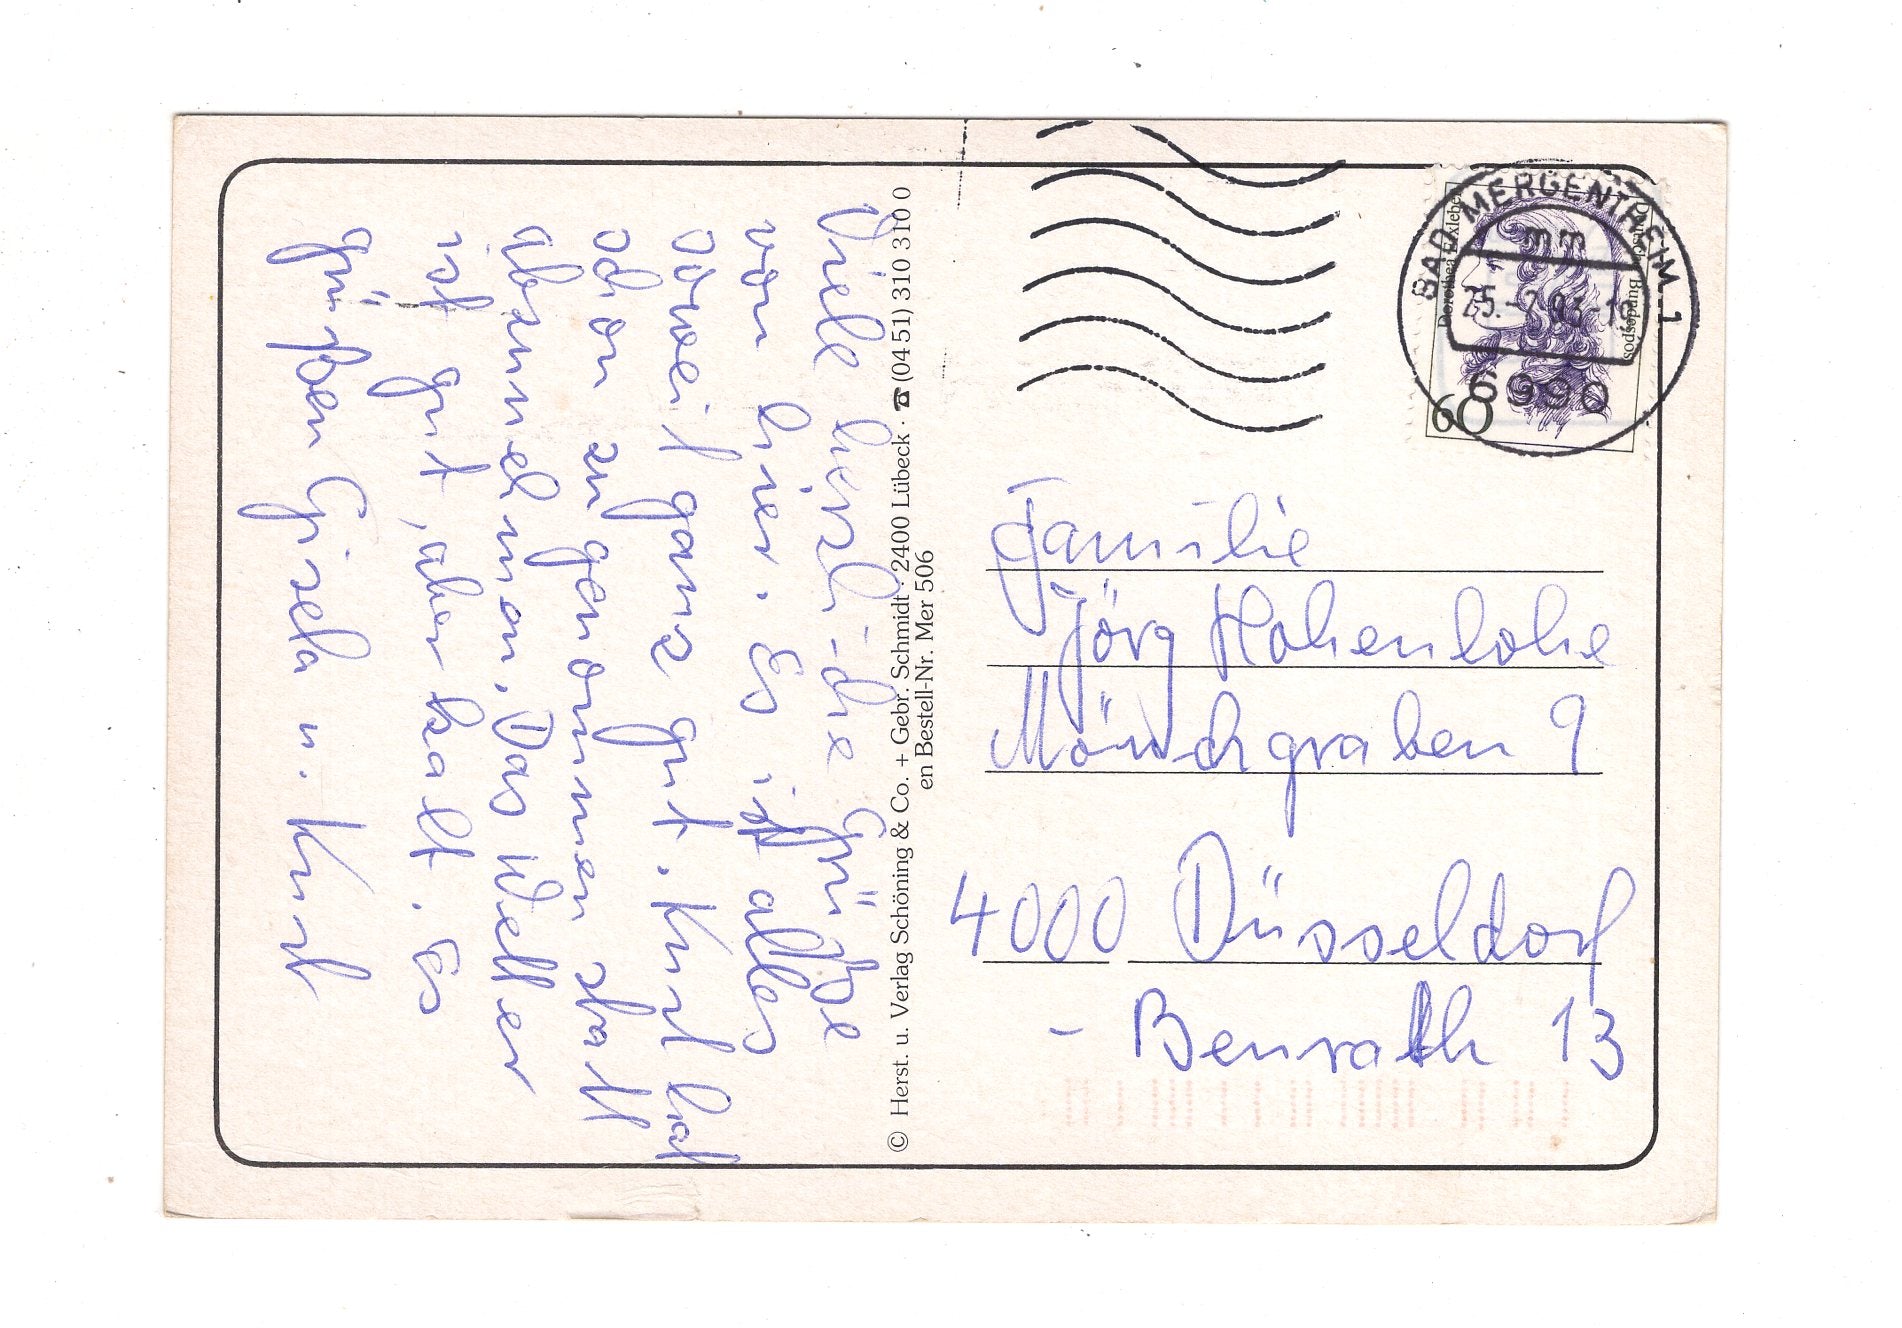 Viele herzli-che Grüße
von hier. Es ist alles
soweit ganz gut. Kurt hat
schon zugenommen statt
abzunehmen. Das Wetter
ist gut, aber kalt. Es
grüßen Gisela u. Kurt
© Herst. u. Verlag Schöning & Co. + Gebr. Schmidt · 2400 Lübeck · ☎ (04 51) 310 310 0
en Bestell-Nr. Mer 506
BAD MERGENTHEIM 1
mm
6990
Dorothea Erxleben
Deutsche Bundespost
60
Familie
Jörg Hohenlohe
Mönchgraben 9
4000 Düsseldorf
- Benrath 13